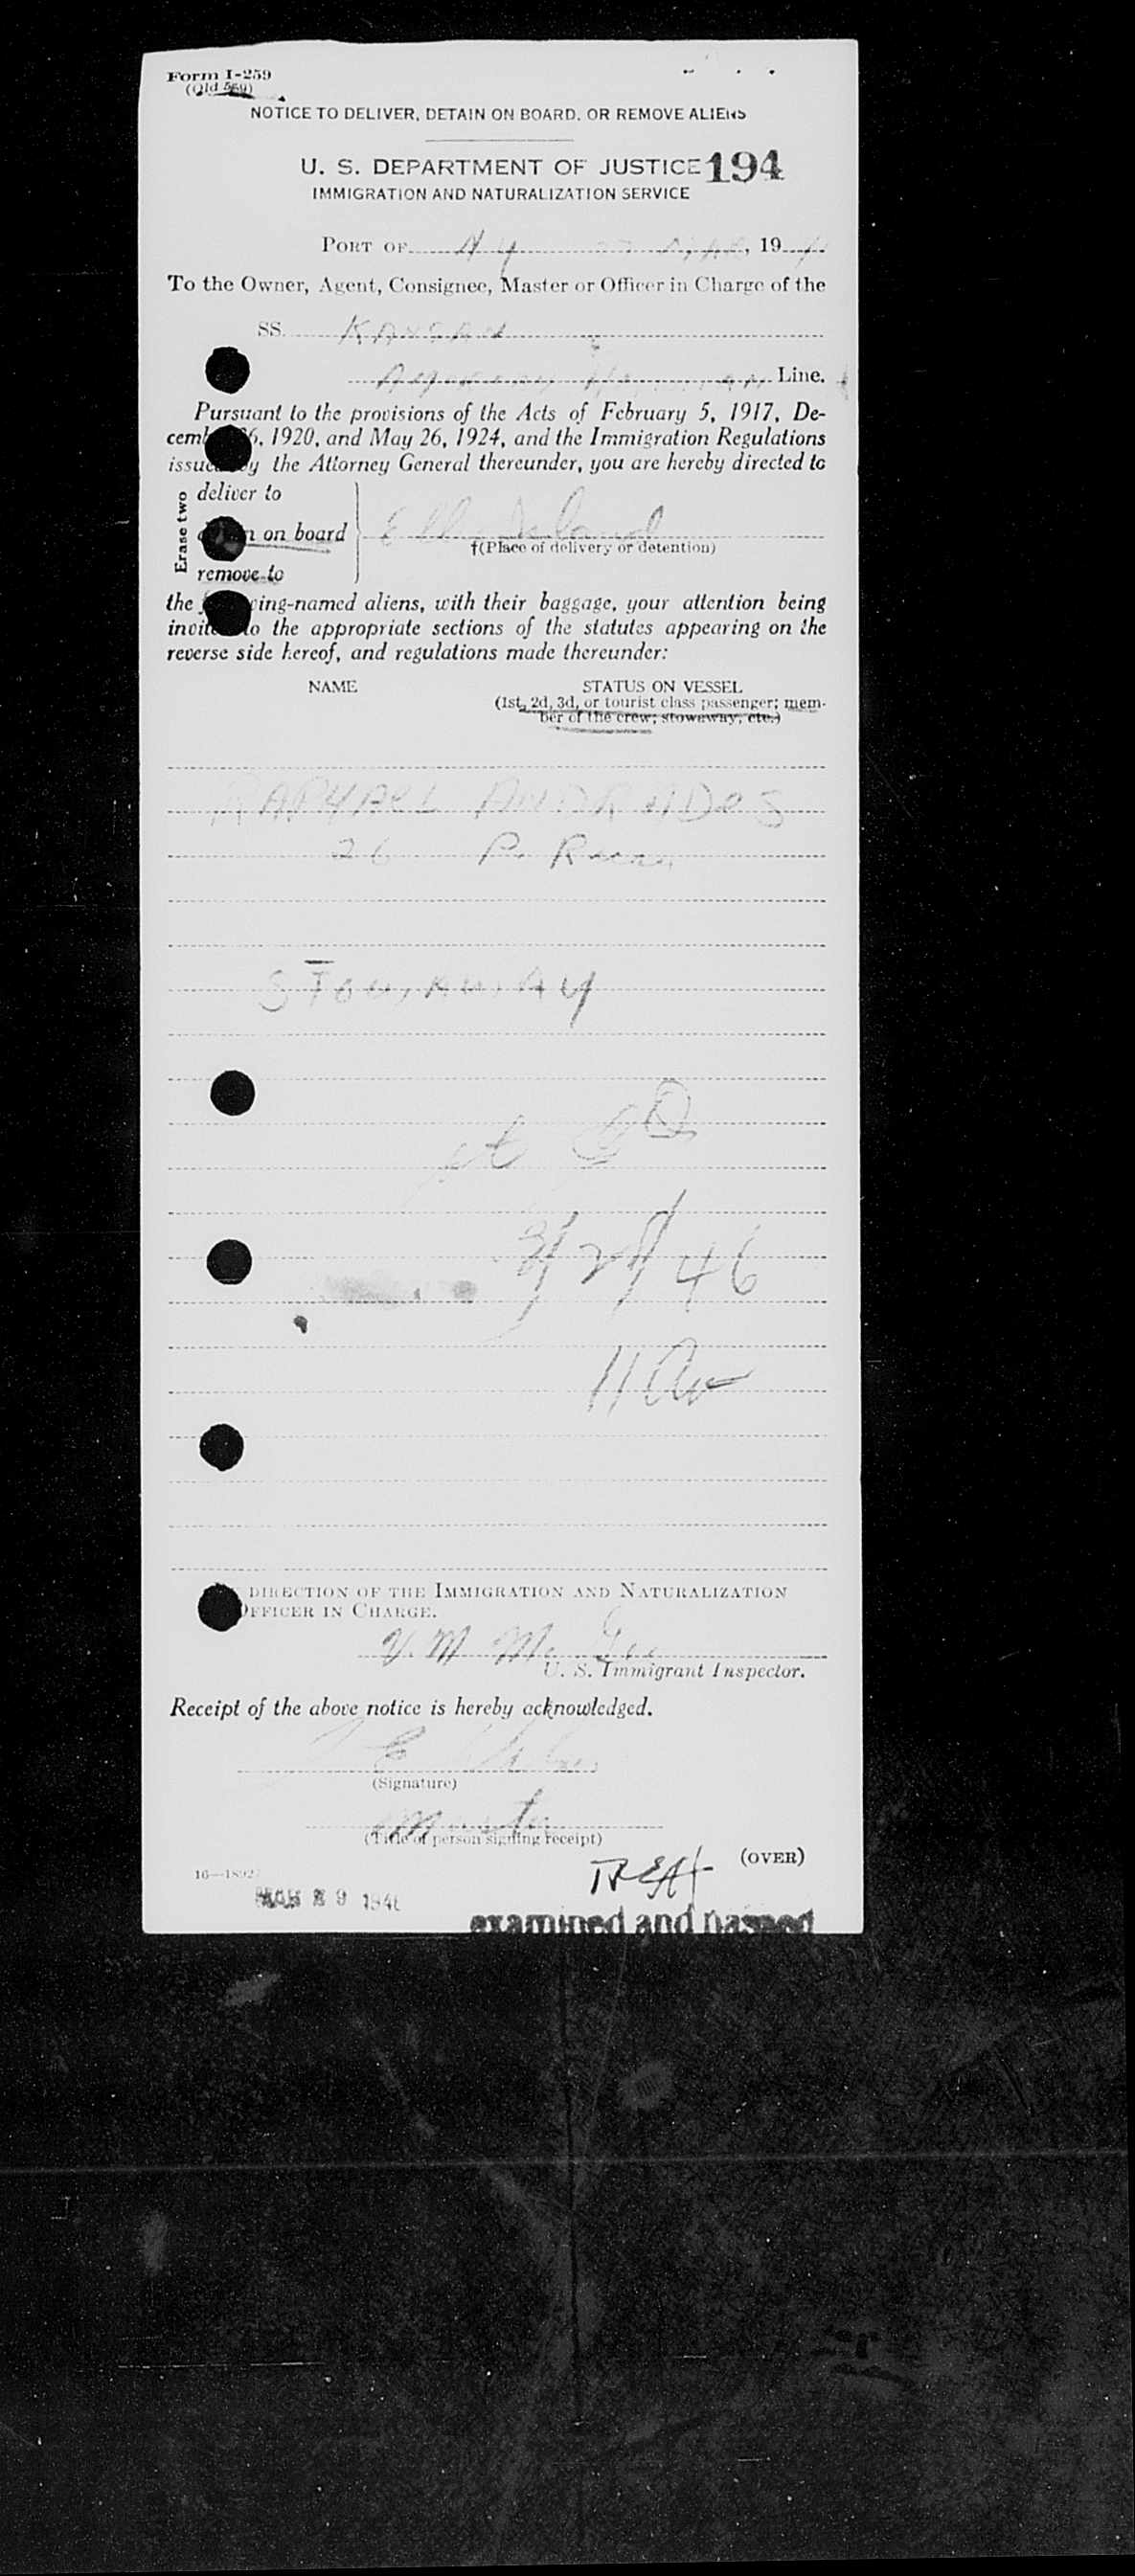 Form I-259
(Old 569)
NOTICE TO DELIVER, DETAIN ON BOARD, OR REMOVE ALIENS
U. S. DEPARTMENT OF JUSTICE 194
IMMIGRATION AND NATURALIZATION SERVICE
PORT OF N Y MAR, 19
To the Owner, Agent, Consignee, Master or Officer in Charge of the
SS. KANSAN
Line.
Pursuant to the provisions of the Acts of February 5, 1917, De-
cem 6, 1920, and May 26, 1924, and the Immigration Regulations
issued by the Attorney General thereunder, you are hereby directed to
Erase two
deliver to
n on board Ellis Island
†(Place of delivery or detention)
remove to
the ing-named aliens, with their baggage, your attention being
invited to the appropriate sections of the statutes appearing on the
reverse side hereof, and regulations made thereunder:
NAME STATUS ON VESSEL
(1st, 2d, 3d, or tourist class passenger; mem-
ber of the crew; stowaway, etc.)
RAPHAEL ANDRADES
26 P. Rican
STOWAWAY
3/28/46
11 am
DIRECTION OF THE IMMIGRATION AND NATURALIZATION
OFFICER IN CHARGE.
V. M. Mc Gee
U. S. Immigrant Inspector.
Receipt of the above notice is hereby acknowledged.
(Signature)
Master
(Title of person signing receipt)
(OVER)
16—1892
MAR 29 1946
examined and passed